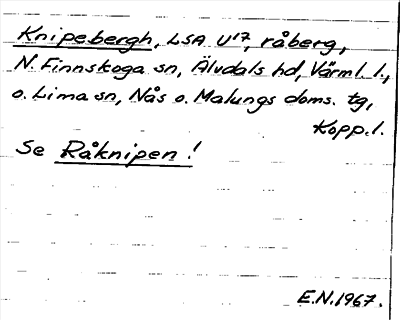 Knipebergh, LSA U17, råberg,
N. Finnskoga sn, Älvdals hd, Värml. l.,
o. Lima sn, Nås o. Malungs doms. tg,
Kopp. l.
Se Råknipen!
E.N. 1967.